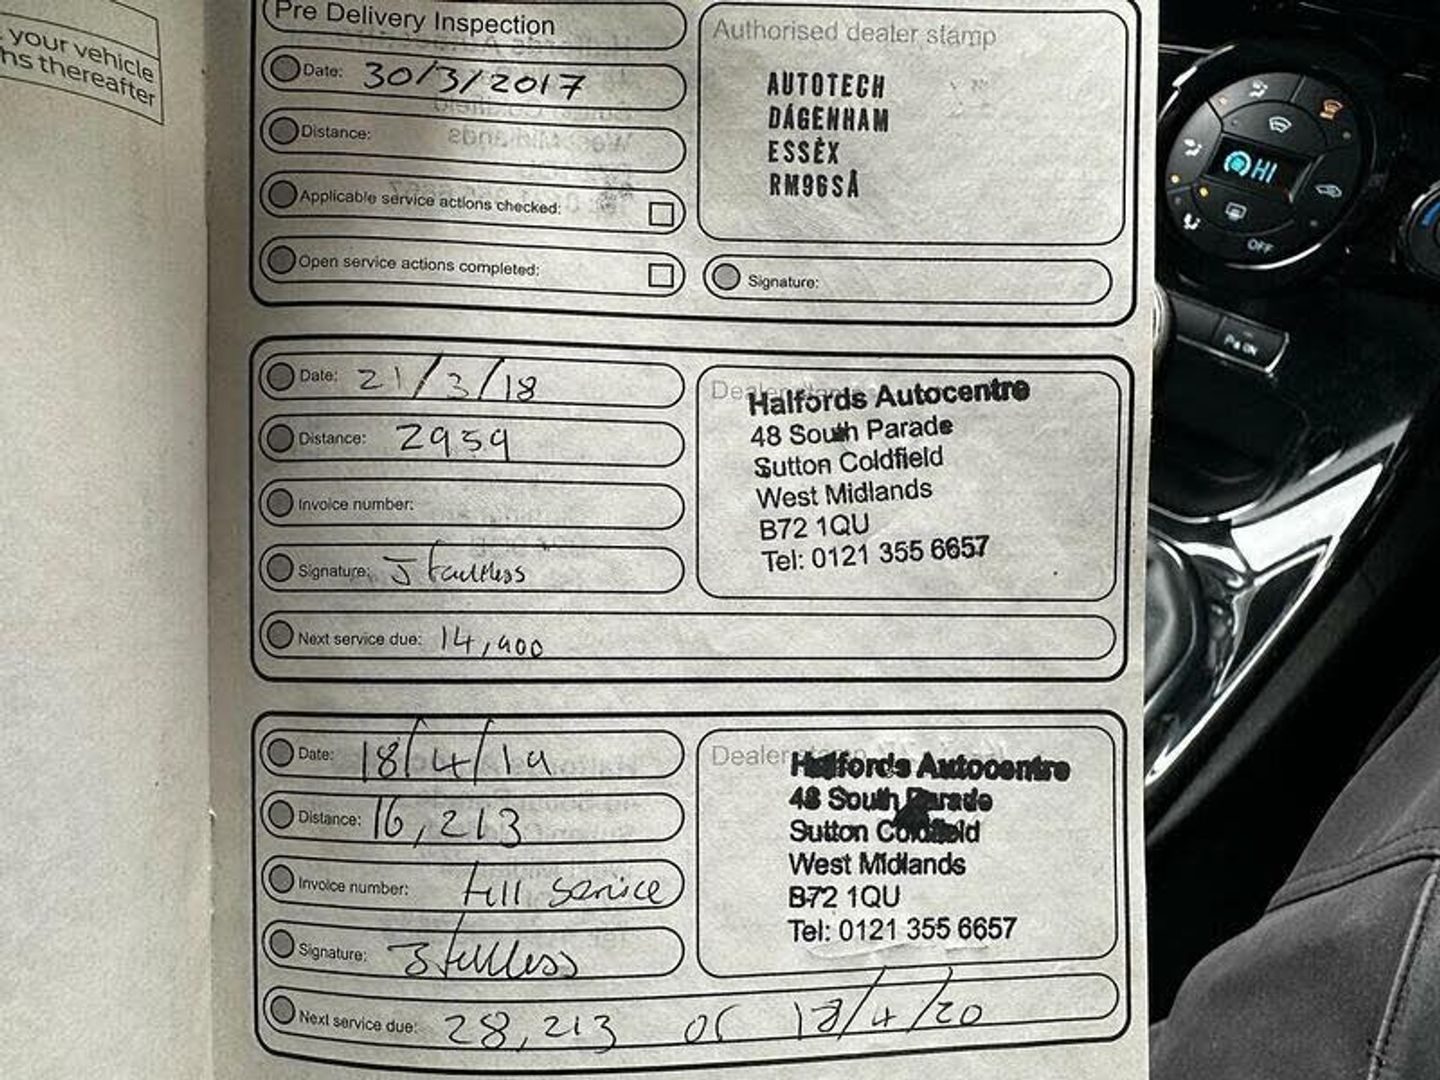 your vehicle
hs thereafter
Pre Delivery Inspection
Date: 30/3/2017
Distance:
Applicable service actions checked:
Open service actions completed:
Authorised dealer stamp
AUTOTECH
DAGENHAM
ESSEX
RM96SA
Signature:
Date: 21/3/18
Distance: 2959
Invoice number:
Signature: J faultless
Next service due: 14,900
Dealer stamp
Halfords Autocentre
48 South Parade
Sutton Coldfield
West Midlands
B72 1QU
Tel: 0121 355 6657
Date: 18/4/19
Distance: 16,213
Invoice number: full service
Signature:
Next service due: 28,213 or 18/4/20
Dealer stamp
Halfords Autocentre
48 South Parade
Sutton Coldfield
West Midlands
B72 1QU
Tel: 0121 355 6657
HI
OFF